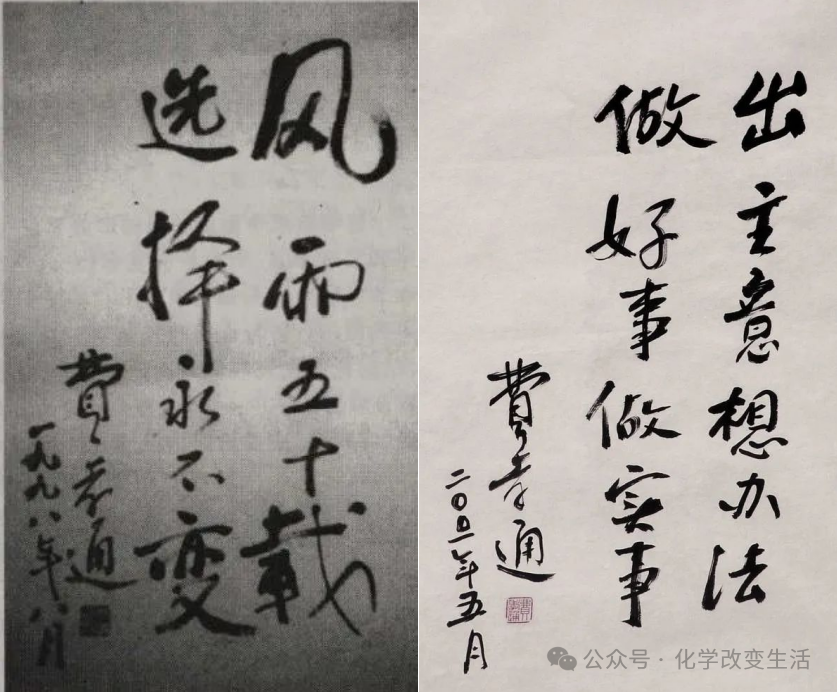 风雨五十载
选择永不变
費孝通
一九九八年八月
出主意想办法
做好事做实事
費孝通
二〇〇一年五月
公众号·化学改变生活